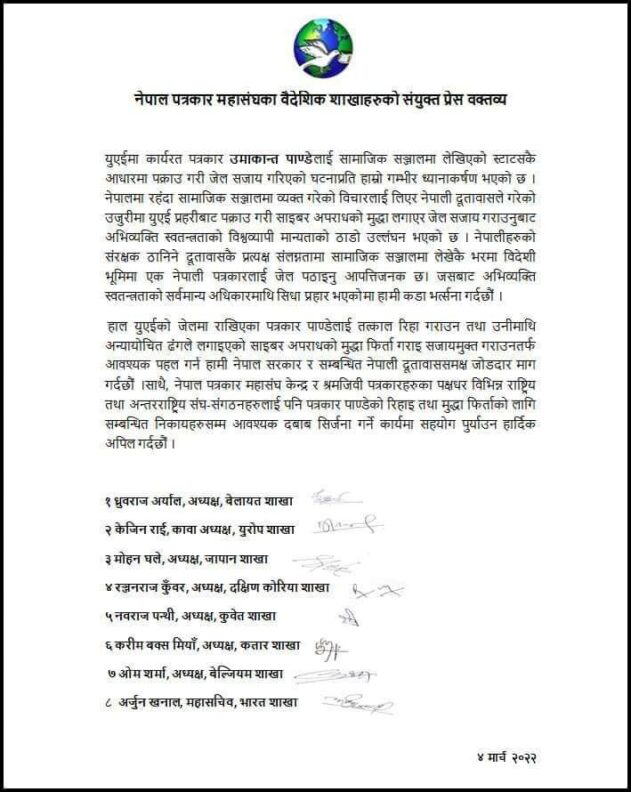 नेपाल पत्रकार महासंघका वैदेशिक शाखाहरुको संयुक्त प्रेस वक्तव्य
युएईमा कार्यरत पत्रकार उमाकान्त पाण्डेलाई सामाजिक सञ्जालमा लेखिएको स्टाटसकै
आधारमा पक्राउ गरी जेल सजाय गरिएको घटनाप्रति हाम्रो गम्भीर ध्यानाकर्षण भएको छ ।
नेपालमा रहंदा सामाजिक सञ्जालमा व्यक्त गरेको विचारलाई लिएर नेपाली दूतावासले गरेको
उजुरीमा युएई प्रहरीबाट पक्राउ गरी साइबर अपराधको मुद्धा लगाएर जेल सजाय गराउनुबाट
अभिव्यक्ति स्वतन्त्रताको विश्वव्यापी मान्यताको ठाडो उल्लंघन भएको छ । नेपालीहरुको
संरक्षक ठानिने दूतावासकै प्रत्यक्ष संलग्नतामा सामाजिक सञ्जालमा लेखेकै भरमा विदेशी
भूमिमा एक नेपाली पत्रकारलाई जेल पठाइनु आपत्तिजनक छ। जसबाट अभिव्यक्ति
स्वतन्त्रताको सर्वमान्य अधिकारमाथि सिधा प्रहार भएकोमा हामी कडा भर्त्सना गर्दछौं ।
हाल युएईको जेलमा राखिएका पत्रकार पाण्डेलाई तत्काल रिहा गराउन तथा उनीमाथि
अन्यायोचित ढंगले लगाइएको साइबर अपराधको मुद्धा फिर्ता गराइ सजायमुक्त गराउनतर्फ
आवश्यक पहल गर्न हामी नेपाल सरकार र सम्बन्धित नेपाली दूतावाससमक्ष जोडदार माग
गर्दछौं ।साथै, नेपाल पत्रकार महासंघ केन्द्र र श्रमजिवी पत्रकारहरुका पक्षधर विभिन्न राष्ट्रिय
तथा अन्तरराष्ट्रिय संघ-संगठनहरुलाई पनि पत्रकार पाण्डेको रिहाइ तथा मुद्धा फिर्ताको लागि
सम्बन्धित निकायहरुसम्म आवश्यक दबाब सिर्जना गर्ने कार्यमा सहयोग पुर्याउन हार्दिक
अपिल गर्दछौं ।
१ ध्रुवराज अर्याल, अध्यक्ष, बेलायत शाखा
२ केजिन राई, कावा अध्यक्ष, युरोप शाखा
३ मोहन घले, अध्यक्ष, जापान शाखा
४ रञ्जनराज कुँवर, अध्यक्ष, दक्षिण कोरिया शाखा
५ नवराज पन्थी, अध्यक्ष, कुवेत शाखा
६ करीम बक्स मियाँ, अध्यक्ष, कतार शाखा
७ ओम शर्मा, अध्यक्ष, बेल्जियम शाखा
८ अर्जुन खनाल, महासचिव, भारत शाखा
४ मार्च २०२२